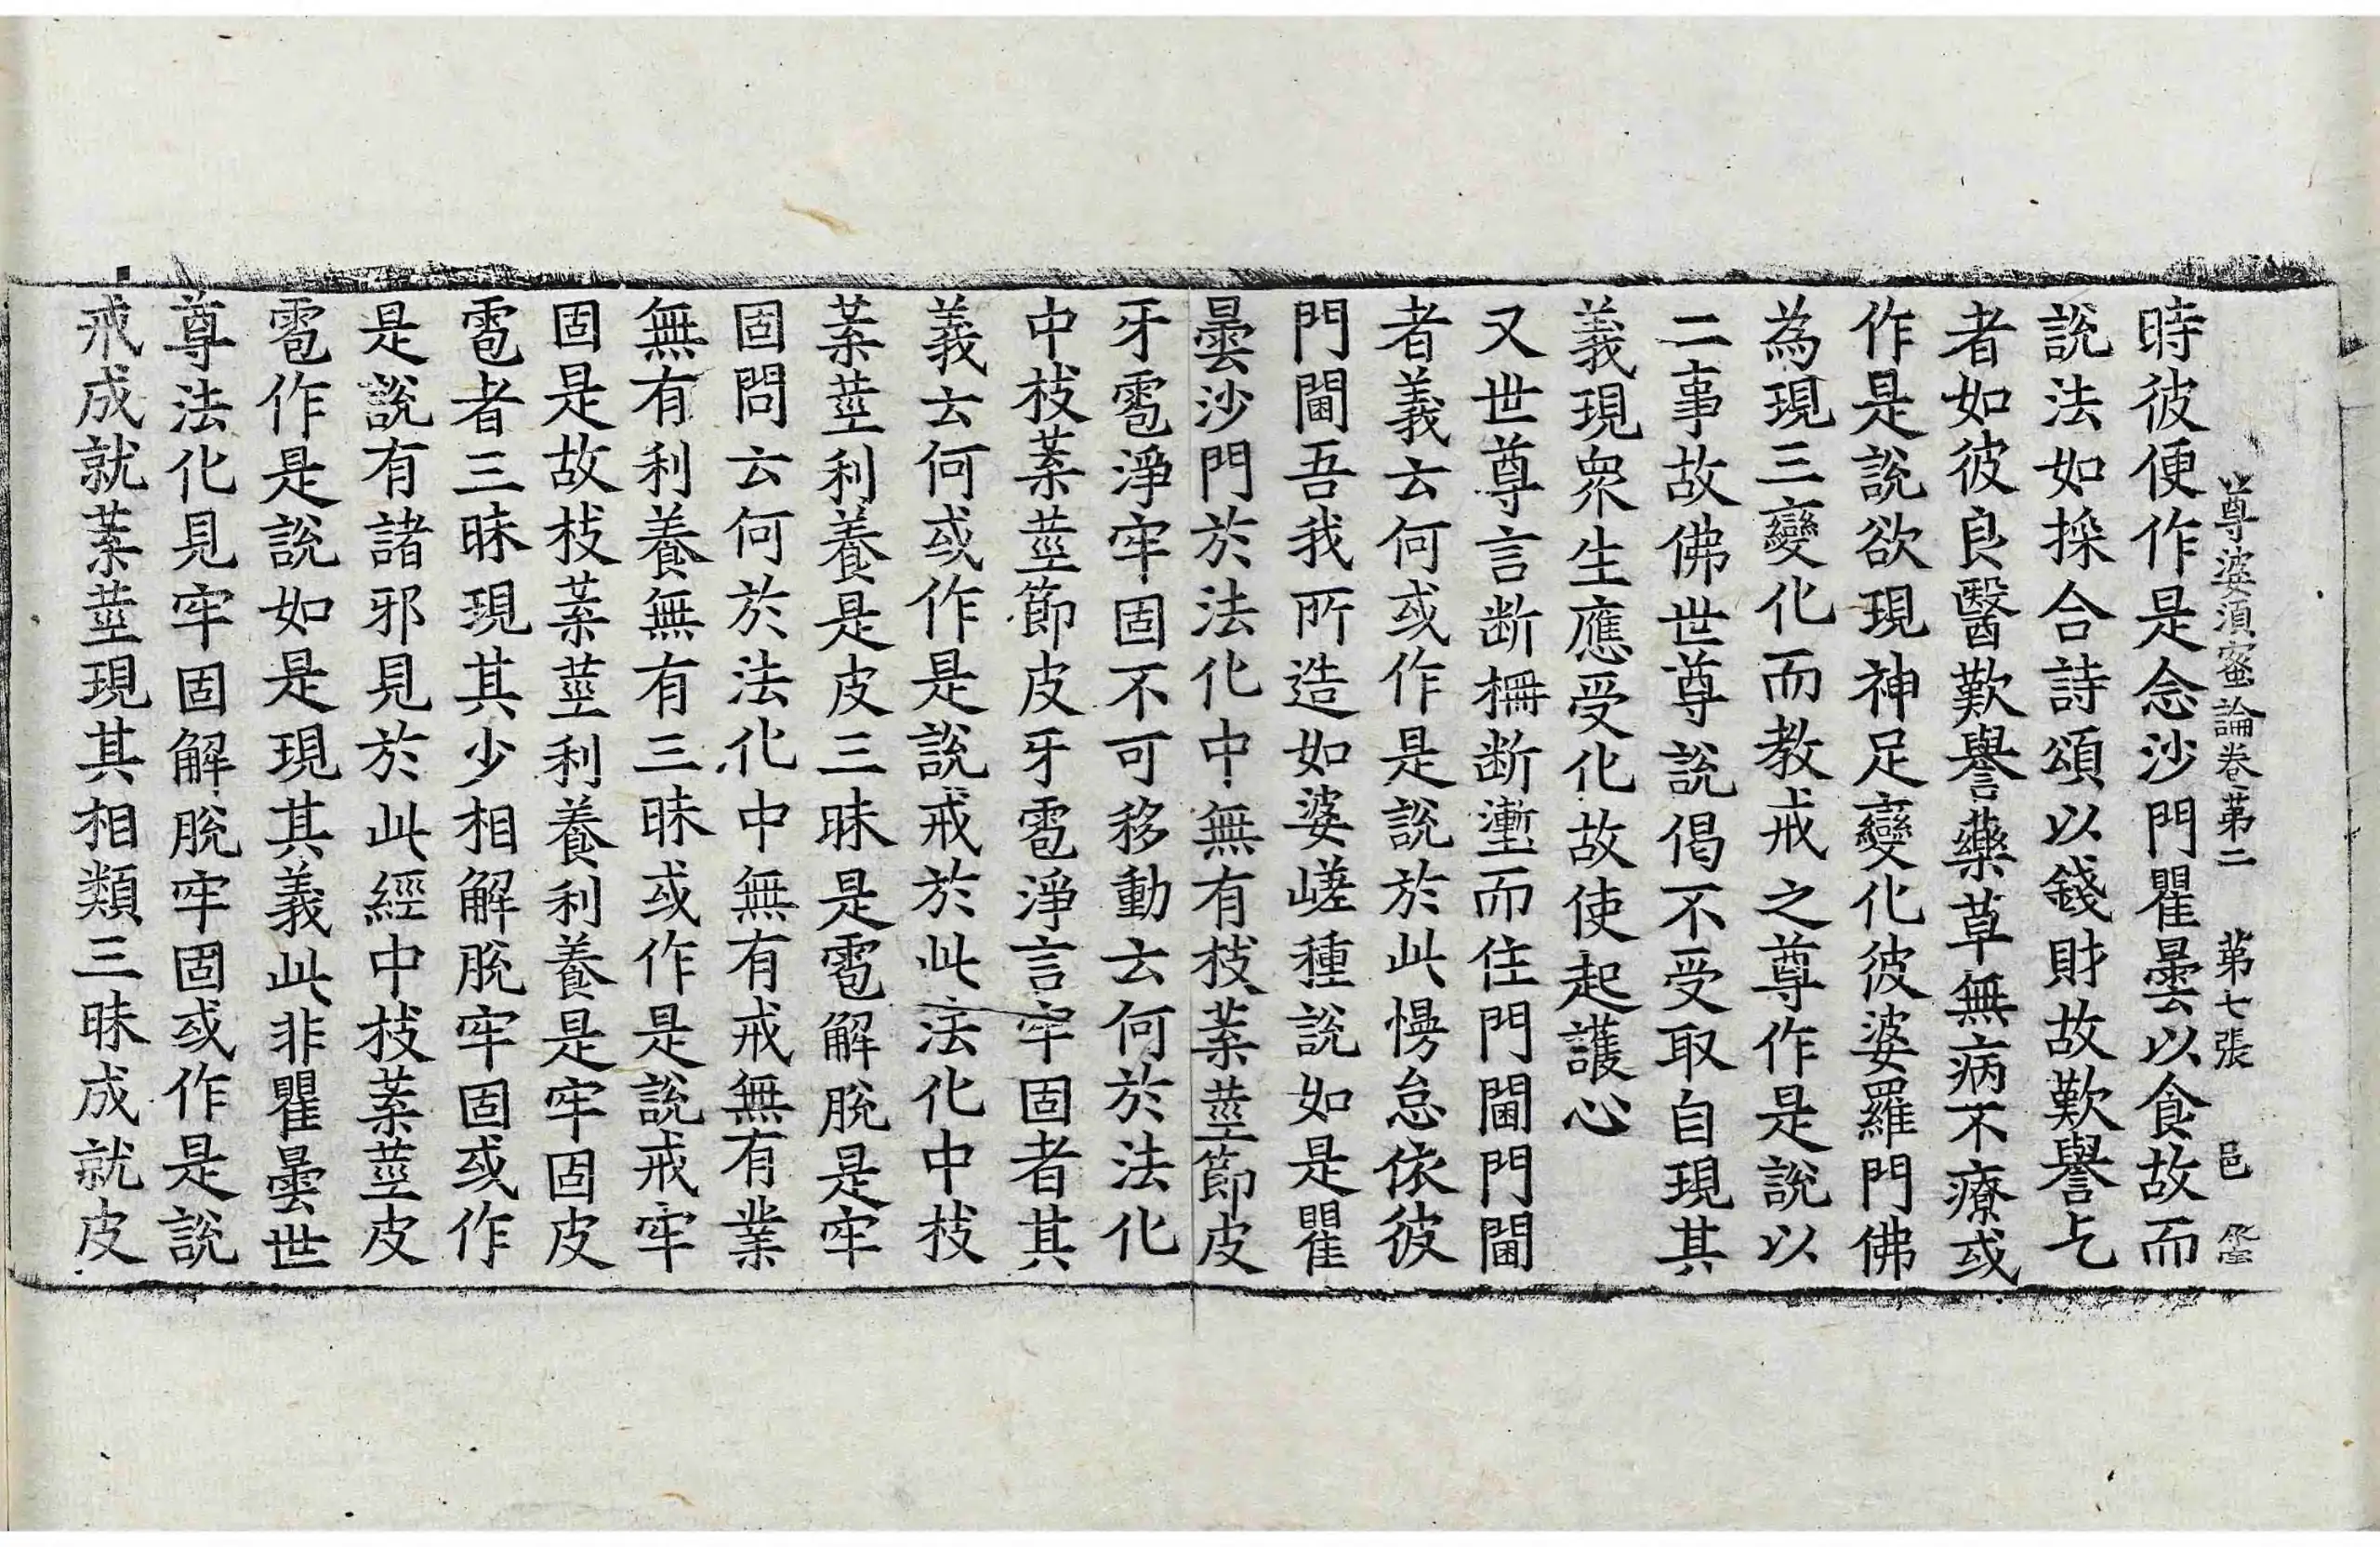 尊婆須蜜論卷第二 第七張 邑
時彼便作是念沙門瞿曇以食故而
說法如採合詩頌以錢財故歎譽乞
者如彼良醫歎譽藥草無病不療或
作是說欲現神足變化彼婆羅門佛
為現三變化而教戒之尊作是說以
二事故佛世尊說偈不受取自現其
義現眾生應受化故使起護心
又世尊言断栅断壍而住門閫門閫
者義云何或作是說於此慢怠依彼
門閫吾我所造如婆嵯種說如是瞿
曇沙門於法化中無有枝葉莖節皮
牙雹淨牢固不可移動云何於法化
中枝葉莖節皮牙雹淨言牢固者其
義云何或作是說戒於此法化中枝
葉莖利養是皮三昧是雹解脫是牢
固問云何於法化中無有戒無有業
無有利養無有三昧或作是說戒牢
固是故枝葉莖利養利養是牢固皮
雹者三昧現其少相解脫牢固或作
是說有諸邪見於此經中枝葉莖皮
雹作是說如是現其義此非瞿曇世
尊法化見牢固解脫牢固或作是說
戒成就葉莖現其相類三昧成就皮